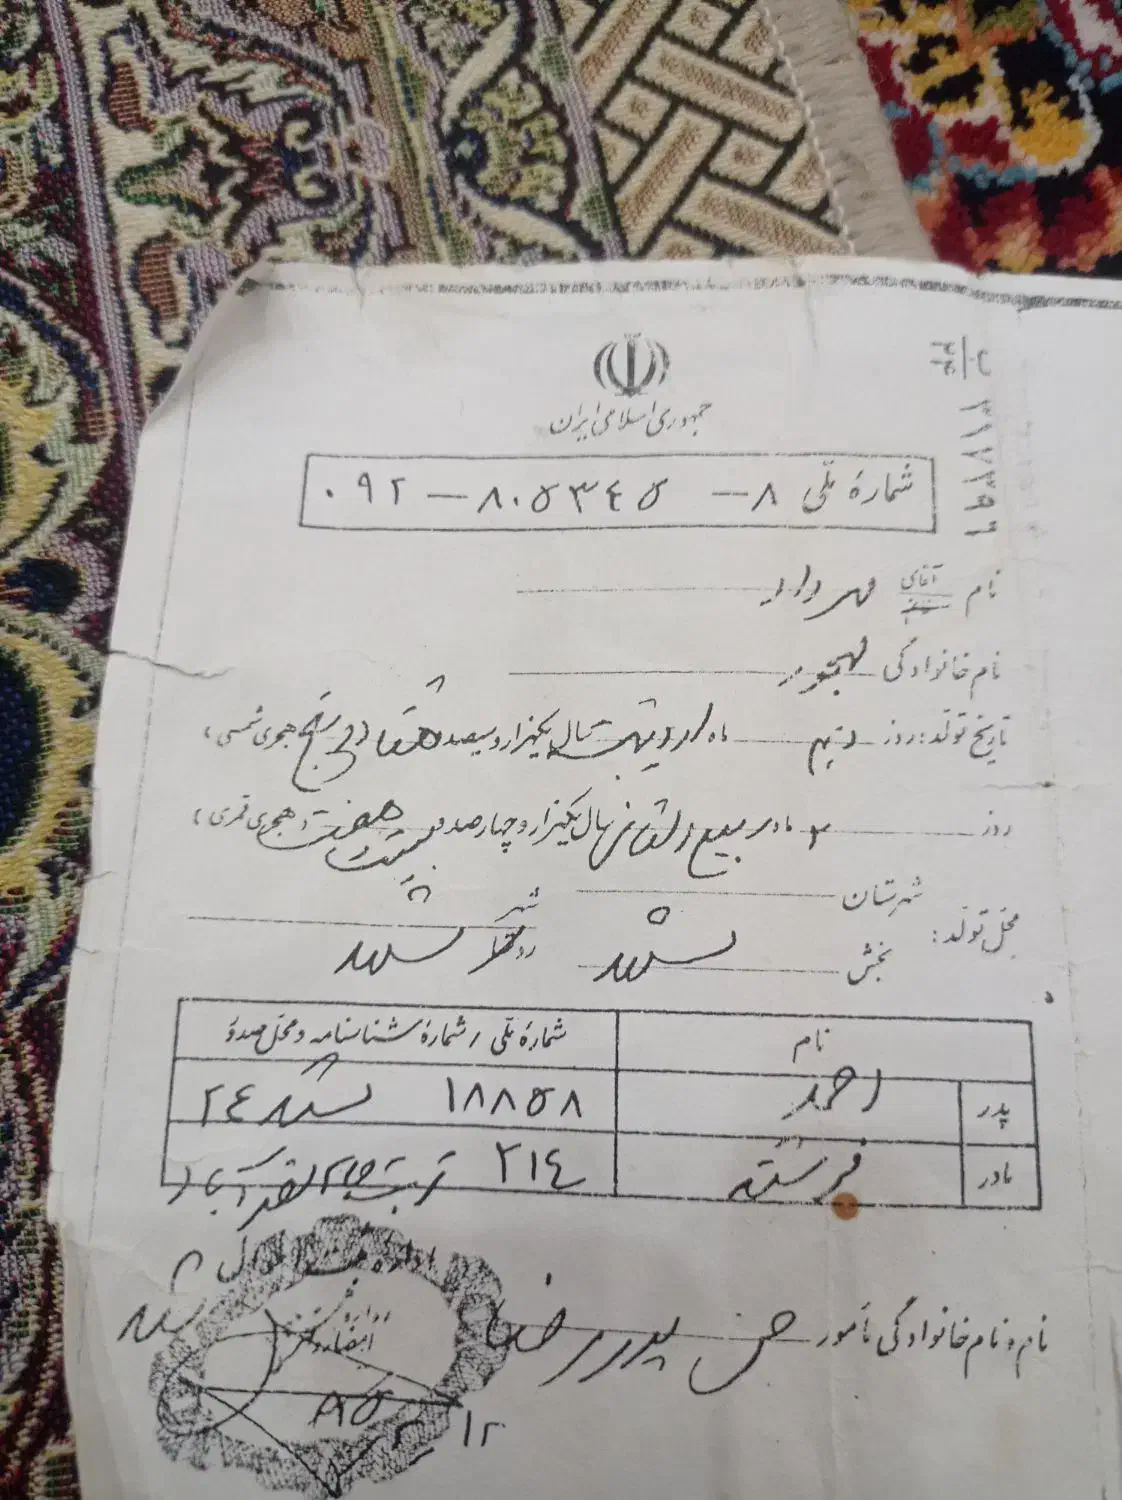 جمهوری اسلامی ایران
۳۱۷۳۹۹
شمارهٔ ملّی ۸ — ۸۰۵۳۴۵ — ۰۹۲
نام آقای مهرداد
نام خانوادگی مهجور
تاریخ تولّد: روز دهم ماه اردیبهشت سال یکهزار و سیصد هفتاد و پنج هجری شمسی
روز ماه ربیع الثانی سال یکهزار و چهارصد و هفت هجری قمری
محلّ تولّد: شهرستان مشهد شهر مشهد
بخش
نام شمارهٔ ملّی / شمارهٔ شناسنامه و محلّ صدور
پدر احمد ۱۸۸۵۸ مشهد ۲۴
مادر فرشته ۲۱۴ تربت جام
نام و نام خانوادگی مأمور حسن پوررضا
۸۵
۱۲